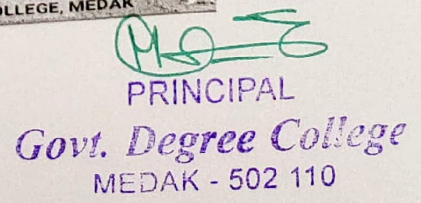 OLLEGE, MEDAK
PRINCIPAL
Govt. Degree College
MEDAK - 502 110